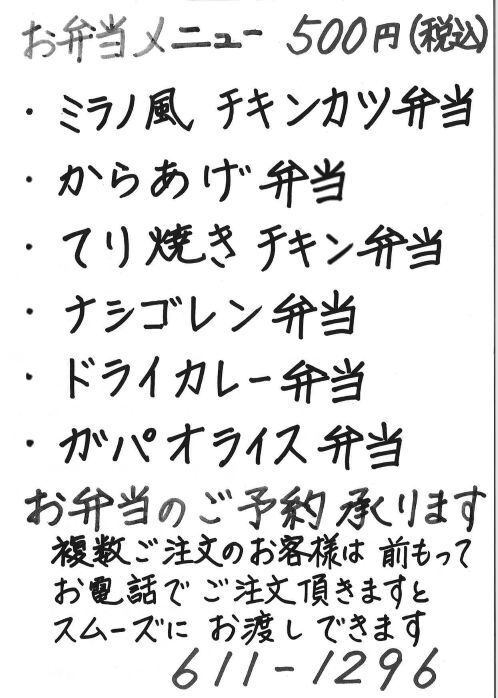 お弁当メニュー 500円(税込)
・ミラノ風 チキンカツ弁当
・からあげ弁当
・てり焼きチキン弁当
・ナシゴレン弁当
・ドライカレー弁当
・ガパオライス弁当
お弁当のご予約承ります
複数ご注文のお客様は 前もって
お電話で ご注文頂きますと
スムーズに お渡しできます
611-1296